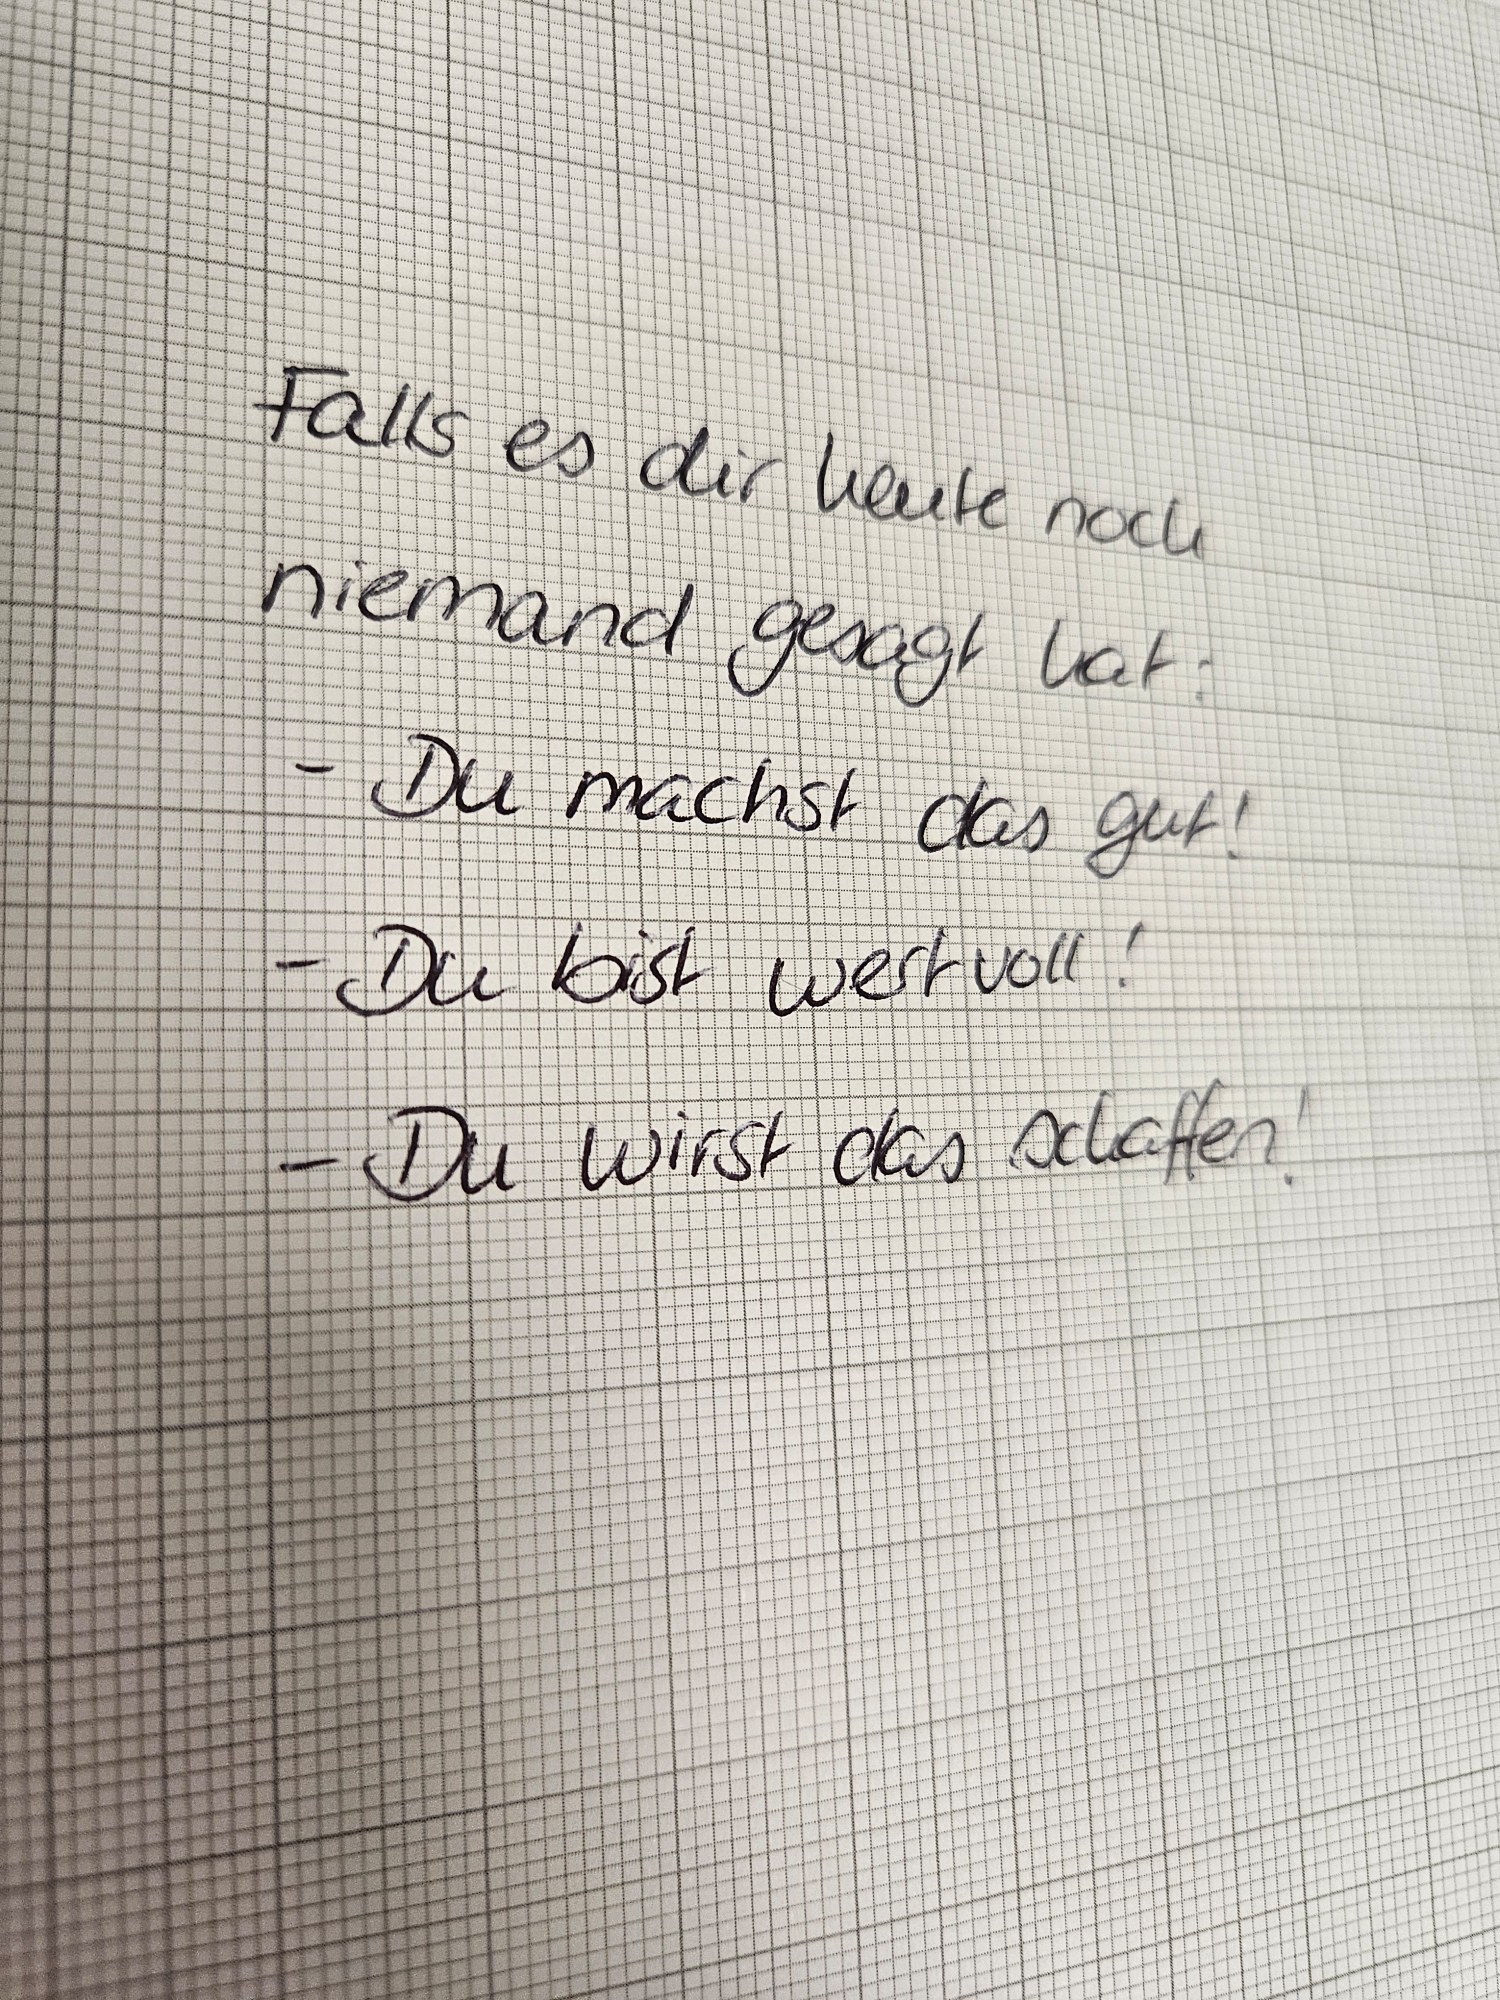 Falls es dir heute noch
niemand gesagt hat:
- Du machst das gut!
- Du bist wertvoll!
- Du wirst das schaffen!